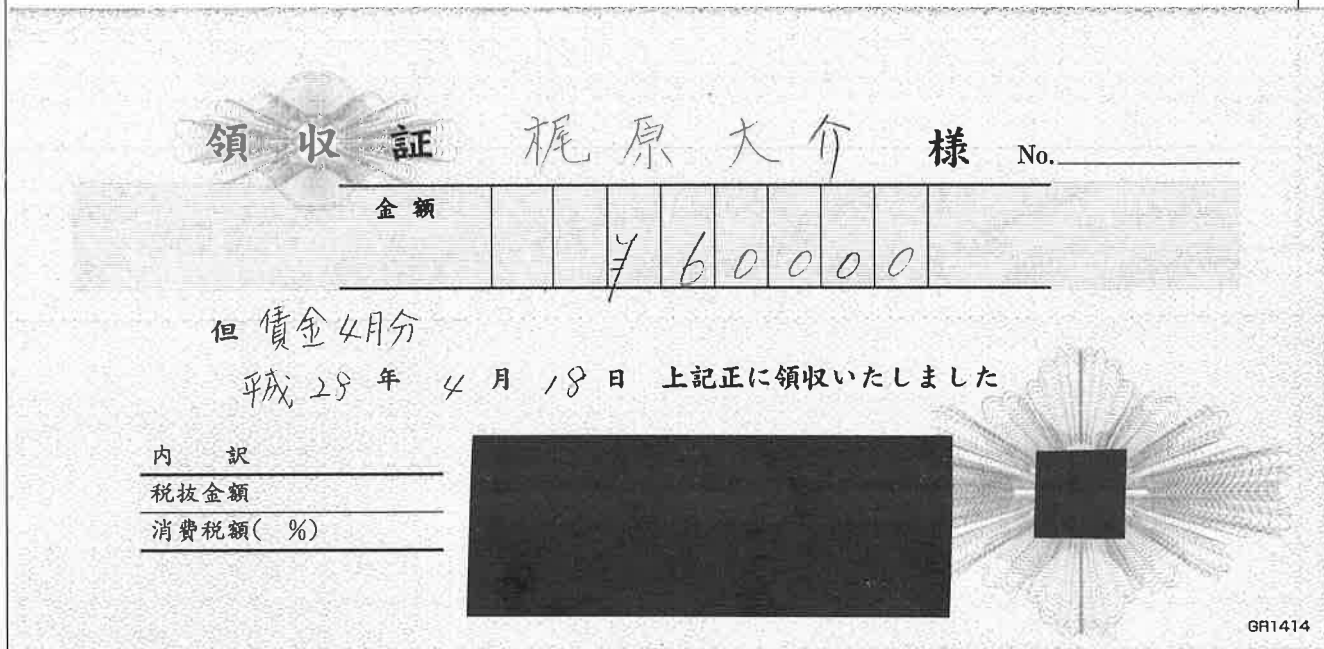 領収証 梶原大介 様 No.
金額 ¥60000
但 賃金4月分
平成29年4月18日 上記正に領収いたしました
内 訳
税抜金額
消費税額( %)
GR1414